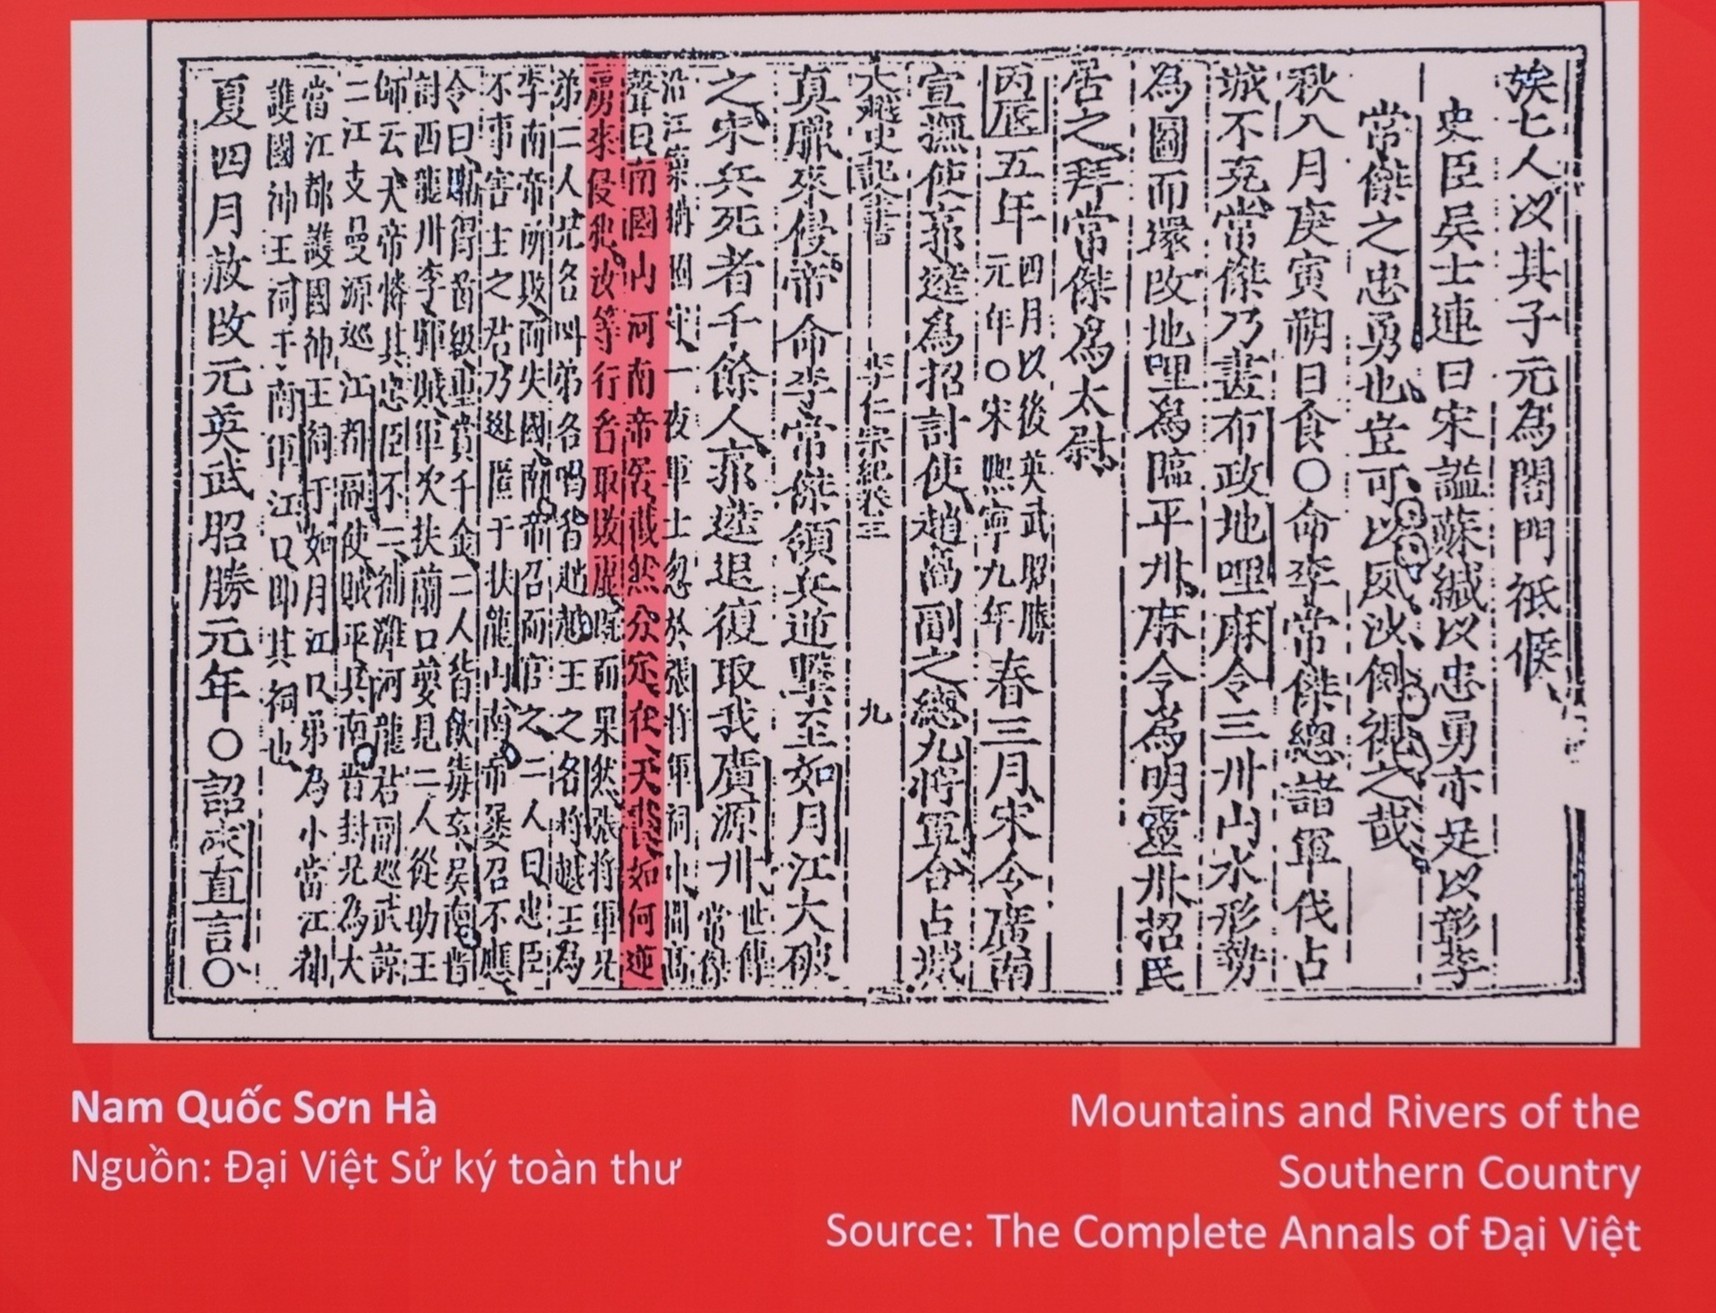 族七人以其子元為閤門祗候
史臣吳士連曰宋謚蘇緘以忠勇亦足以彰李
常傑之忠勇也豈可以側視之哉
秋八月庚寅朔日食○命李常傑總諸軍伐占
城不克常傑乃畫布政地哩麻令三州山水形勢
為圖而還改地哩為臨平州麻令為明靈州招民
居之拜常傑為太尉
丙辰五年四月以後英武昭勝元年○宋熙寧九年春三月宋令廣南
宣撫使郭逵為招討使趙卨副之總九將軍合占城
大越史記全書 李仁宗紀卷三 九
真臘來侵帝命李常傑領兵逆擊至如月江大破
之宋兵死者千餘人郭逵退復取我廣源州世傳常傑
沿江築柵固守一夜軍士忽於張將軍祠中聞高
聲曰南國山河南帝居截然分定在天書如何逆
虜來侵犯汝等行看取敗虛既而果然張將軍兄
弟二人兄名叫弟名喝皆趙越王之名將越王為
李南帝所敗而失國南帝召而官之二人曰忠臣
不事害主之君乃逃匿于扶龍山南帝屢召不應
令曰購得首級重賞千金二人皆飲毒卒吳南晉
討西龍州李暉賊軍次扶蘭口夢見二人從助王
師云天帝憐其忠臣不二補灘河龍君副巡武諒
二江支曼源巡江都副使賊平其南晉封兄為大
當江都護國神王祠于如月江口弟為小當江都
護國神王祠于南軍江口即其祠也
夏四月赦改元英武昭勝元年○詔求直言○
Nam Quốc Sơn Hà
Nguồn: Đại Việt Sử ký toàn thư
Mountains and Rivers of the
Southern Country
Source: The Complete Annals of Đại Việt